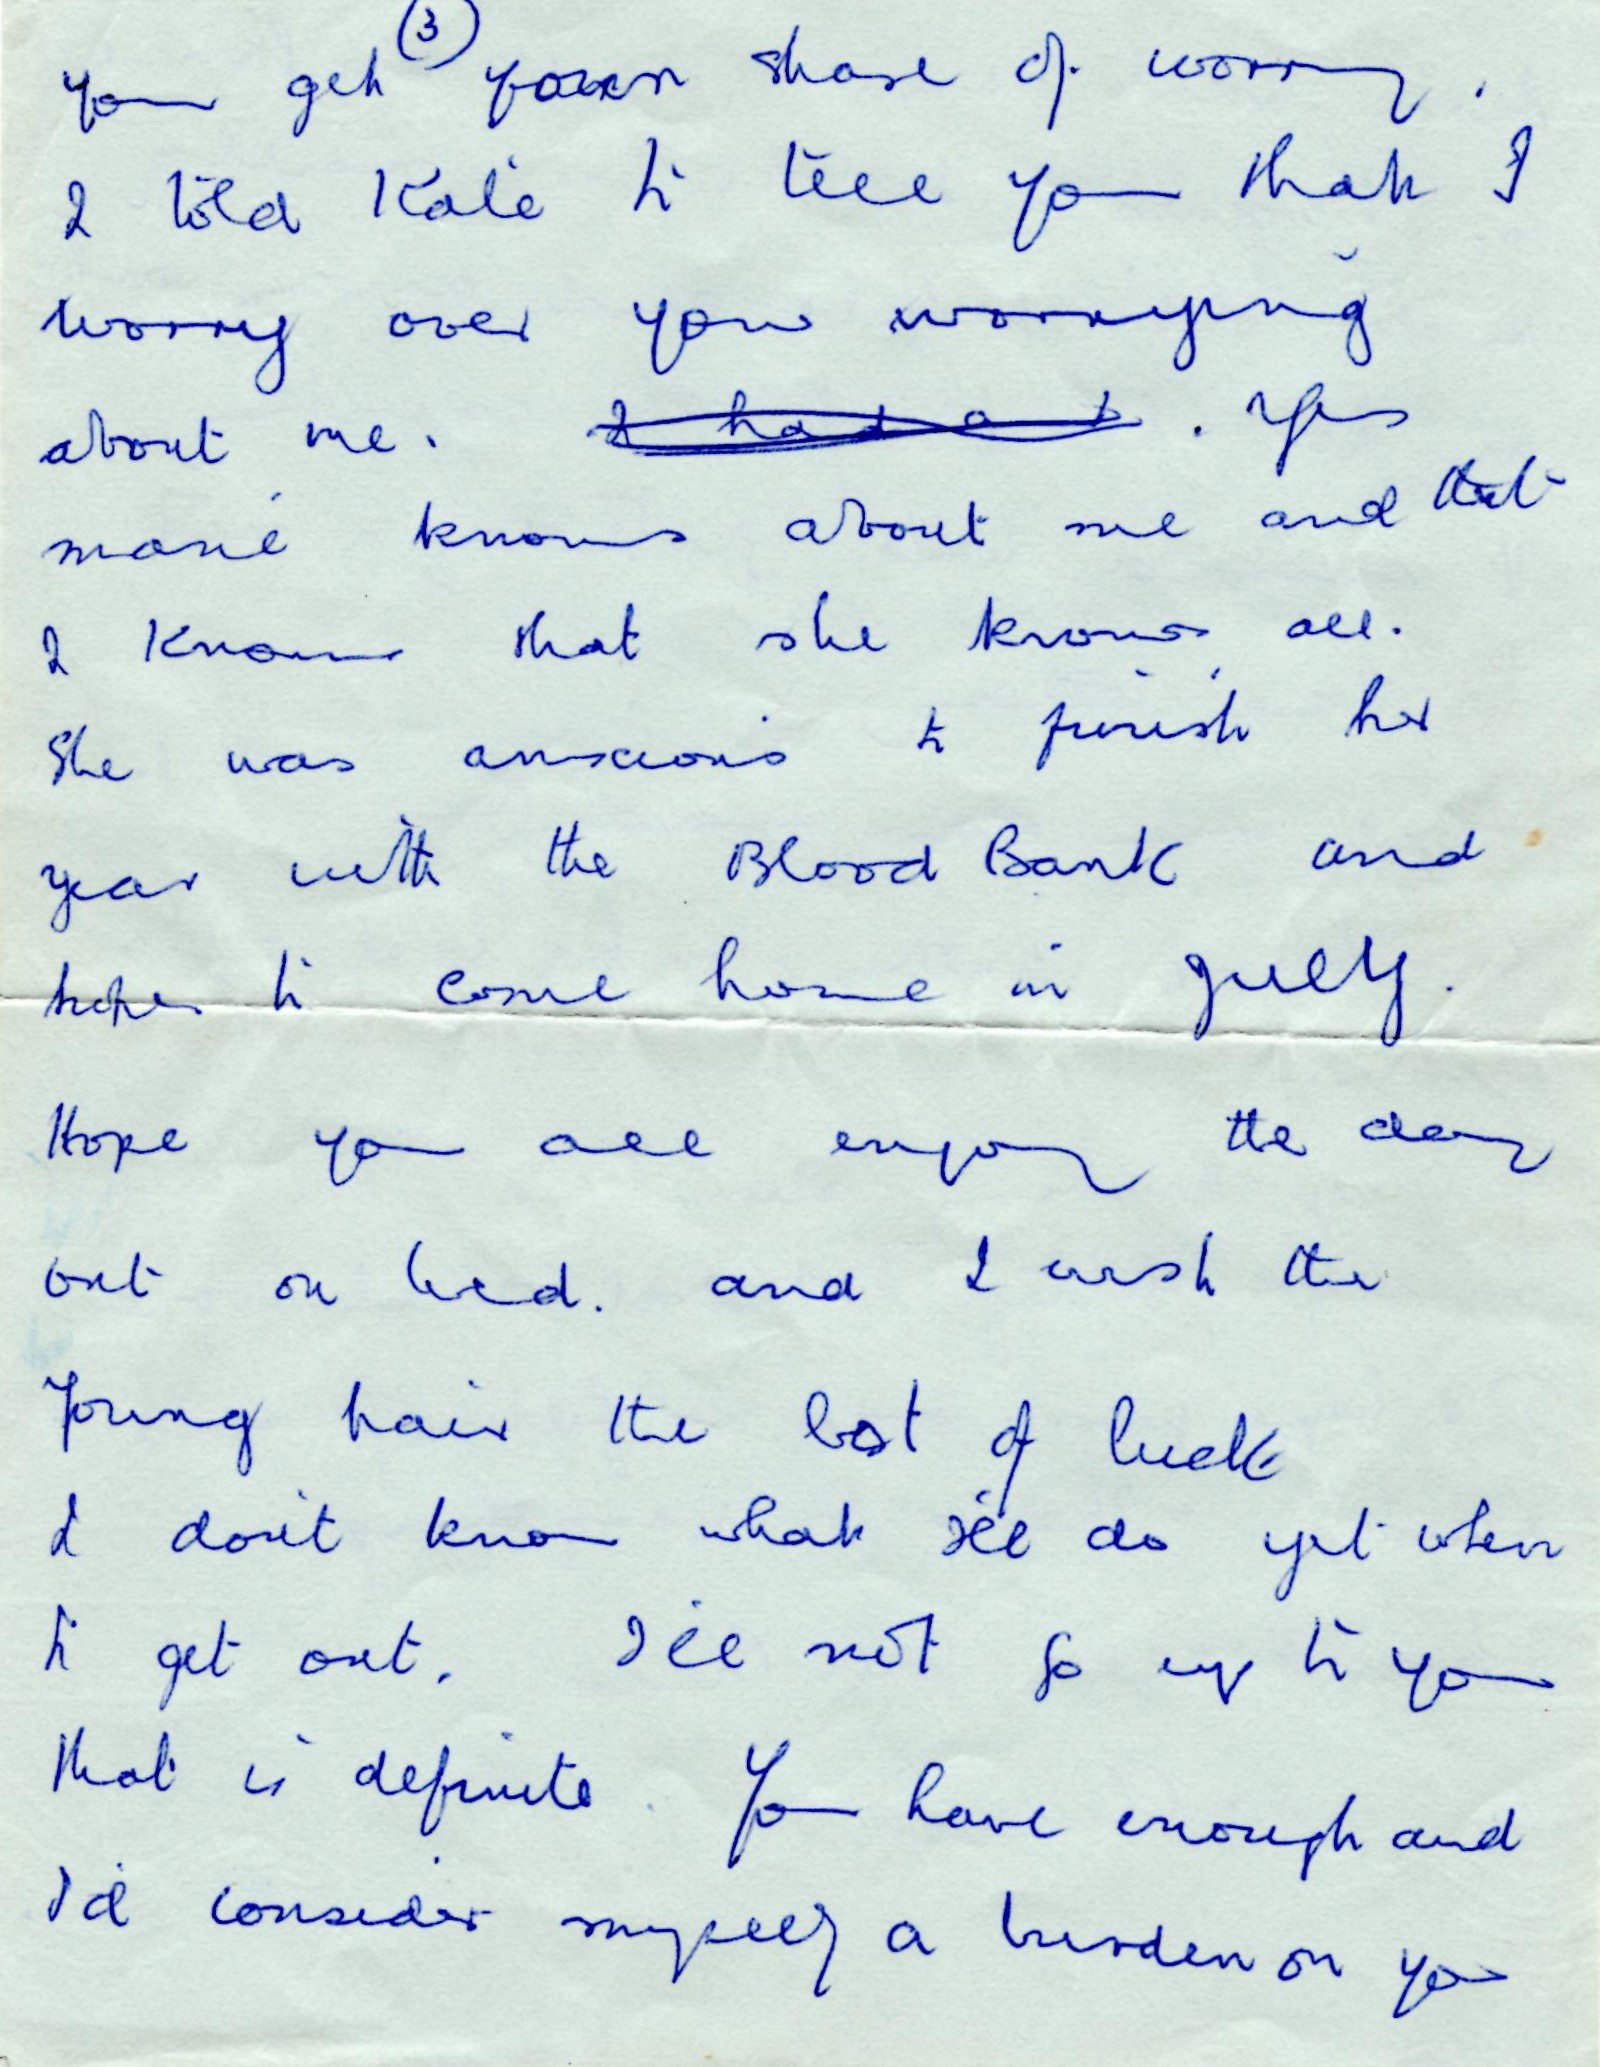 3
you get your share of worry.
I told Kate to tell you that I
worry over you worrying
about me. I had a . Yes
Marie knows about me and that
I know that she knows all.
She was anxious to finish her
year with the Blood Bank and
hopes to come home in July.
Hope you all enjoy the day
out on Wed. and I wish the
Young pair the best of luck
I don't know what I'll do yet when
I get out. I'll not go up to you
that is definite. You have enough and
I'd consider myself a burden on you